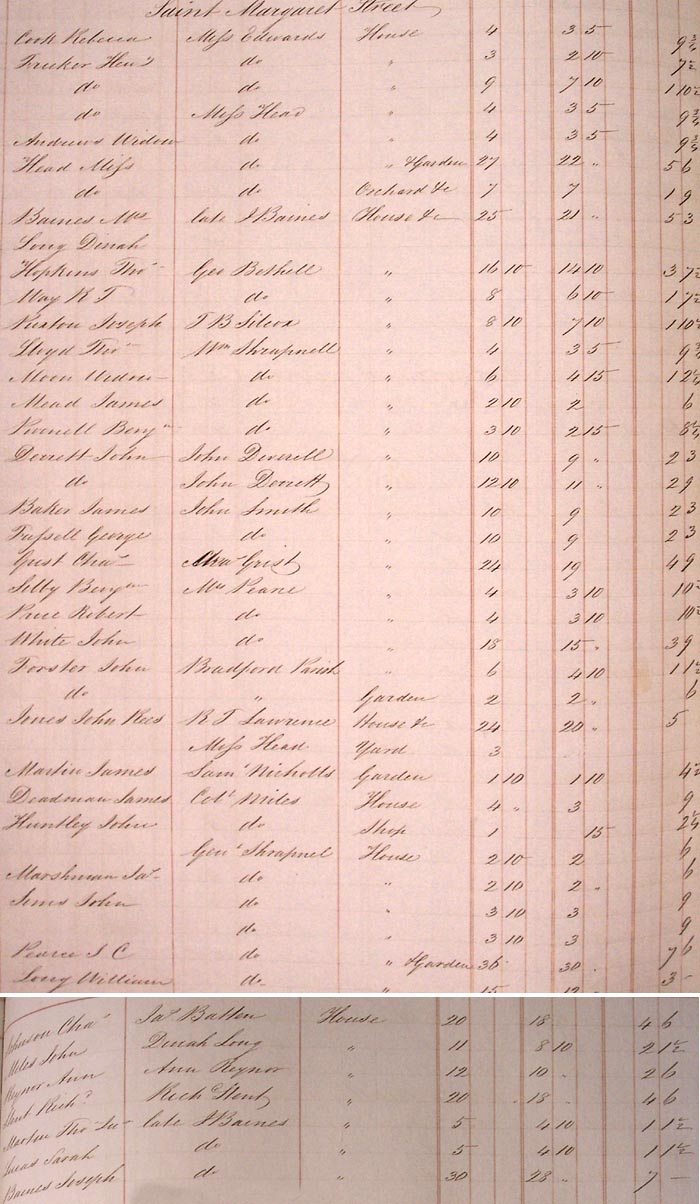 Saint Margaret Street
Cook Rebecca Miss Edwards House 4 3 5 9 3/4
Trucker Hen's do " 3 2 10 7 1/2
do do " 9 7 10 1 10 1/2
do Miss Head " 4 3 5 9 3/4
Andrews Widow do " 4 3 5 9 3/4
Head Miss do " & Garden 27 22 " 5 6
do do Orchard &c 7 7 1 9
Baines Mrs late J Baines House &c 25 21 " 5 3
Long Dinah
Hopkins Thos Geo Bethell " 16 10 14 10 3 7 1/2
May R T do " 8 6 10 1 7 1/2
Ruston Joseph T B Silcox " 8 10 7 10 1 10 1/2
Lloyd Thos Wm Shrapnell " 4 3 5 9 3/4
Moon Widow do " 6 4 15 1 2 1/4
Mead James do " 2 10 2 6
Benjn do " 3 10 2 15 8 1/4
Dorrett John John Deverell " 10 9 " 2 3
do John Dorrett " 12 10 11 " 2 9
Baker James John Smith " 10 9 2 3
Fussell George do " 10 9 2 3
Grist Chas Chas Grist " 24 19 4 9
Selby Benjn Mrs Pearce " 4 3 10 10 1/2
Price Robert do " 4 3 10 10 1/2
White John do " 18 15 " 3 9
Forster John Bradford Parish " 6 4 10 1 1 1/2
do " Garden 2 2 " 6
Jones John Rees R T Lawrence House &c 24 20 " 5
Miss Head Yard 3
Martin James Saml Nicholls Garden 1 10 1 10 4 1/2
Deadman James Colr Miles House 4 " 3 9
Huntley John do Shop 1 15 2 1/4
Genl Shrapnel House 2 10 2 6
Marshman Jas do " 2 10 2 " 6
Jones John do " 3 10 3 9
do " 3 10 3 9
Pearce S C do " & Garden 36 30 . 7 6
Long William do " 15 12 " 3 -
Johnson Chas Jas Batten House 20 18 4 6
Miles John Dinah Long " 11 8 10 2 1 1/2
Reynor Ann Ann Reynor " 12 10 " 2 6
Kent Richd Richd Kent " 20 18 " 4 6
Martin Thos Junr late J Baines " 5 4 10 1 1 1/2
Lucas Sarah do " 5 4 10 1 1 1/2
Baines Joseph do " 30 28 " 7 -